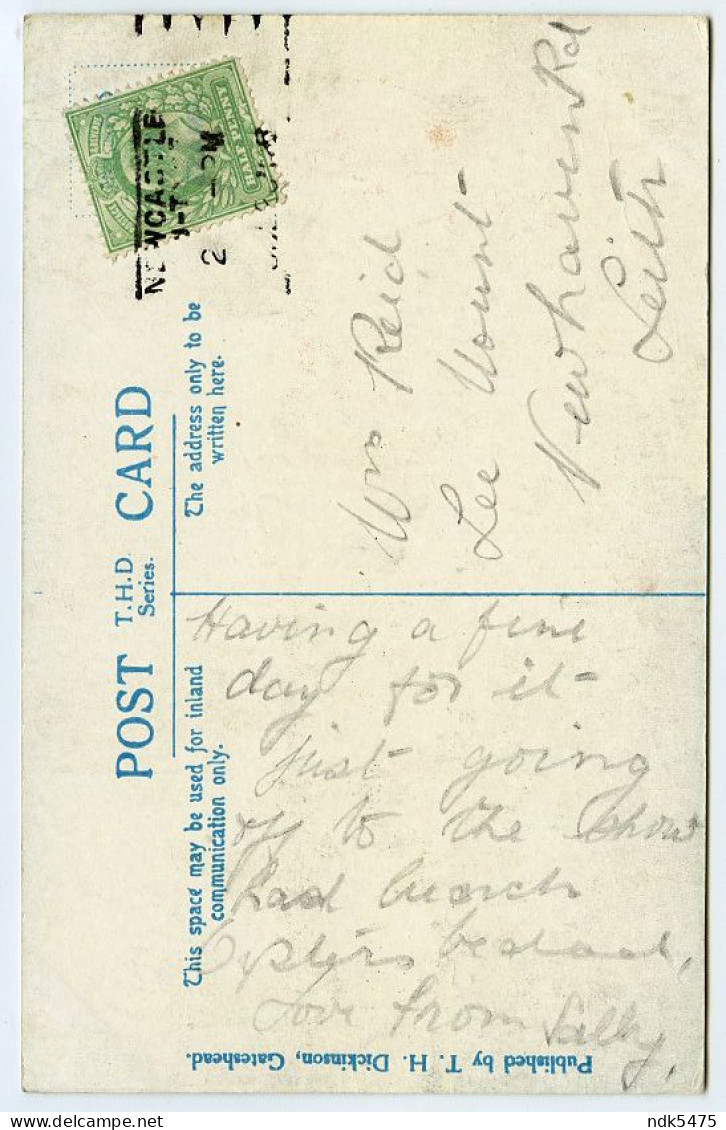 POST CARD
T.H.D.
Series.
This space may be used for inland
communication only.
The address only to be
written here.
NEWCASTLE
HALFPENNY
Having a fine
day for it
just going
off to the show
had
Oysters
Love from Sally,
Reid
Lee Mount
Newhaven Rd
Leith
Published by T. H. Dickinson, Gateshead.
delcampe.net
ndk5475